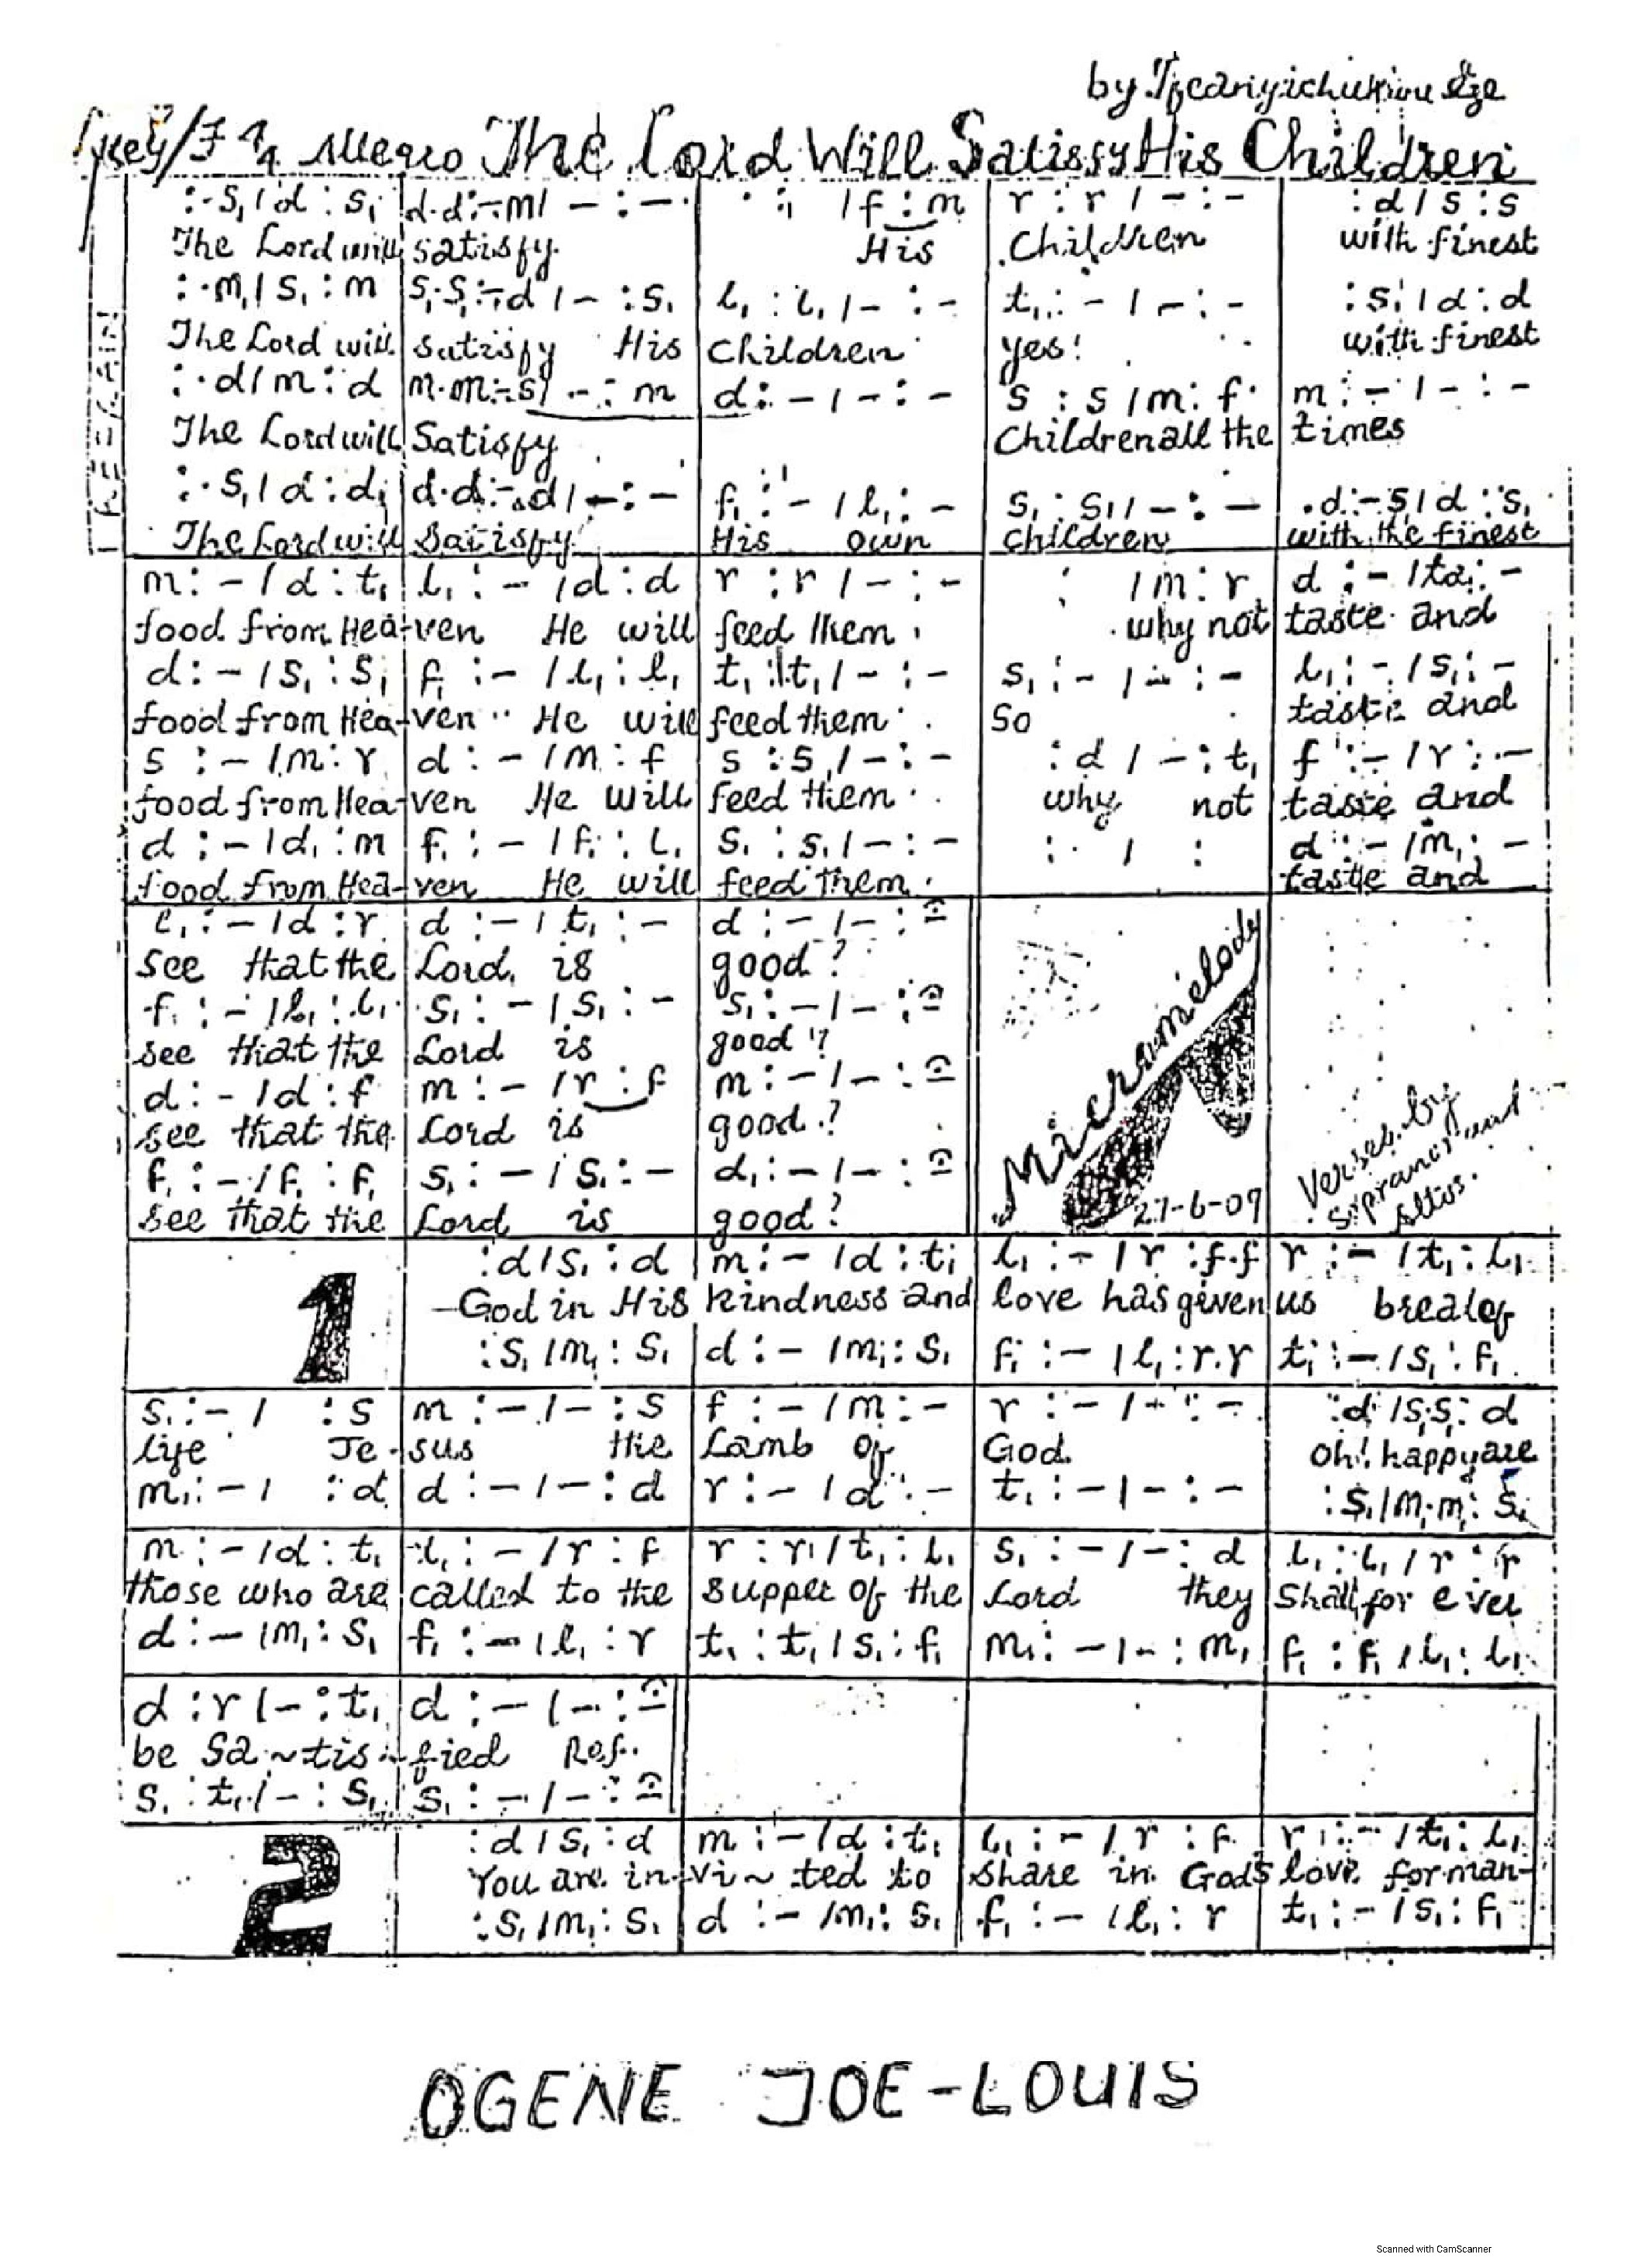 by Ifeanyichukwu Eze
Key/F 4/4 Allegro The Lord Will Satisfy His Children
REFRAIN
:·s₁ | d : s₁ | d·d:-·m | - : - | : | f : m | r : r | - : - | : d | s : s
The Lord will satisfy His Children with finest
:·m₁ | s₁ : m | s₁·s₁:-·d | - : s₁ | l₁ : l₁ | - : - | t₁ : - | - : - | : s₁ | d : d
The Lord will satisfy His Children yes! with finest
:·d | m : d | m·m:-·s | - : m | d : - | - : - | s : s | m : f | m : - | - : -
The Lord will Satisfy Children all the times
:·s₁ | d : d₁ | d·d:-·d | - : - | f₁ : - | l₁ : - | s₁ : s₁ | - : - | ·d:-·s | d : s₁
The Lord will Satisfy His own children with the finest
m : - | d : t₁ | l₁ : - | d : d | r : r | - : - | : | m : r | d : - | ta₁ : -
food from Hea-ven He will feed them why not taste and
d : - | s₁ : s₁ | f₁ : - | l₁ : l₁ | t₁ : t₁ | - : - | s₁ : - | - : - | l₁ : - | s₁ : -
food from Hea-ven He will feed them So taste and
s : - | m : r | d : - | m : f | s : s | - : - | : d | - : t₁ | f : - | r : -
food from Hea-ven He will feed them why not taste and
d : - | d₁ : m | f₁ : - | f₁ : l₁ | s₁ : s₁ | - : - | : | : | d : - | m₁ : -
food from Hea-ven He will feed them. taste and
l₁ : - | d : r | d : - | t₁ : - | d : - | - : -
see that the Lord is good?
f₁ : - | l₁ : l₁ | s₁ : - | s₁ : - | s₁ : - | - : -
see that the Lord is good?
d : - | d : f | m : - | r : f | m : - | - : -
see that the Lord is good?
f₁ : - | f₁ : f₁ | s₁ : - | s₁ : - | d₁ : - | - : -
see that the Lord is good?
Micramelody
27-6-09
Verses by
sopranos and
altos.
1
: d | s₁ : d | m : - | d : t₁ | l₁ : - | r : f·f | r : - | t₁ : l₁
God in His kindness and love has given us bread of
: s₁ | m₁ : s₁ | d : - | m₁ : s₁ | f₁ : - | l₁ : r·r | t₁ : - | s₁ : f₁
s₁ : - | : s | m : - | - : s | f : - | m : - | r : - | - : - | : d | s₁·s₁ : d
life Je-sus the Lamb of God. Oh! happy are
m₁ : - | : d | d : - | - : d | r : - | d : - | t₁ : - | - : - | : s₁ | m₁·m₁ : s₁
m : - | d : t₁ | l₁ : - | r : f | r : r | t₁ : l₁ | s₁ : - | - : d | l₁ : l₁ | r : r
those who are called to the supper of the Lord they shall for ever
d : - | m₁ : s₁ | f₁ : - | l₁ : r | t₁ : t₁ | s₁ : f₁ | m₁ : - | - : m₁ | f₁ : f₁ | l₁ : l₁
d : r | - : t₁ | d : - | - : -
be Sa~tis-fied Ref.
s₁ : t₁ | - : s₁ | s₁ : - | - : -
2
: d | s₁ : d | m : - | d : t₁ | l₁ : - | r : f | r : - | t₁ : l₁
You are in-vi~ted to share in God's love for man-
: s₁ | m₁ : s₁ | d : - | m₁ : s₁ | f₁ : - | l₁ : r | t₁ : - | s₁ : f₁
OGENE JOE-LOUIS
Scanned with CamScanner